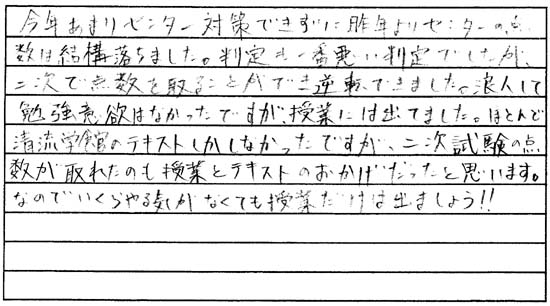 今年あまりセンター対策できずに昨年よりセンターの点
数は結構落ちました。判定も一番悪い判定でしたが、
二次で点数を取ることができ逆転できました。浪人して
勉強意欲はなかったですが、授業には出てました。ほとんど
清流学館のテキストしかしなかったですが、二次試験の点
数が取れたのも授業とテキストのおかげだったと思います。
なのでいくらやる気がなくても授業だけは出ましょう!!